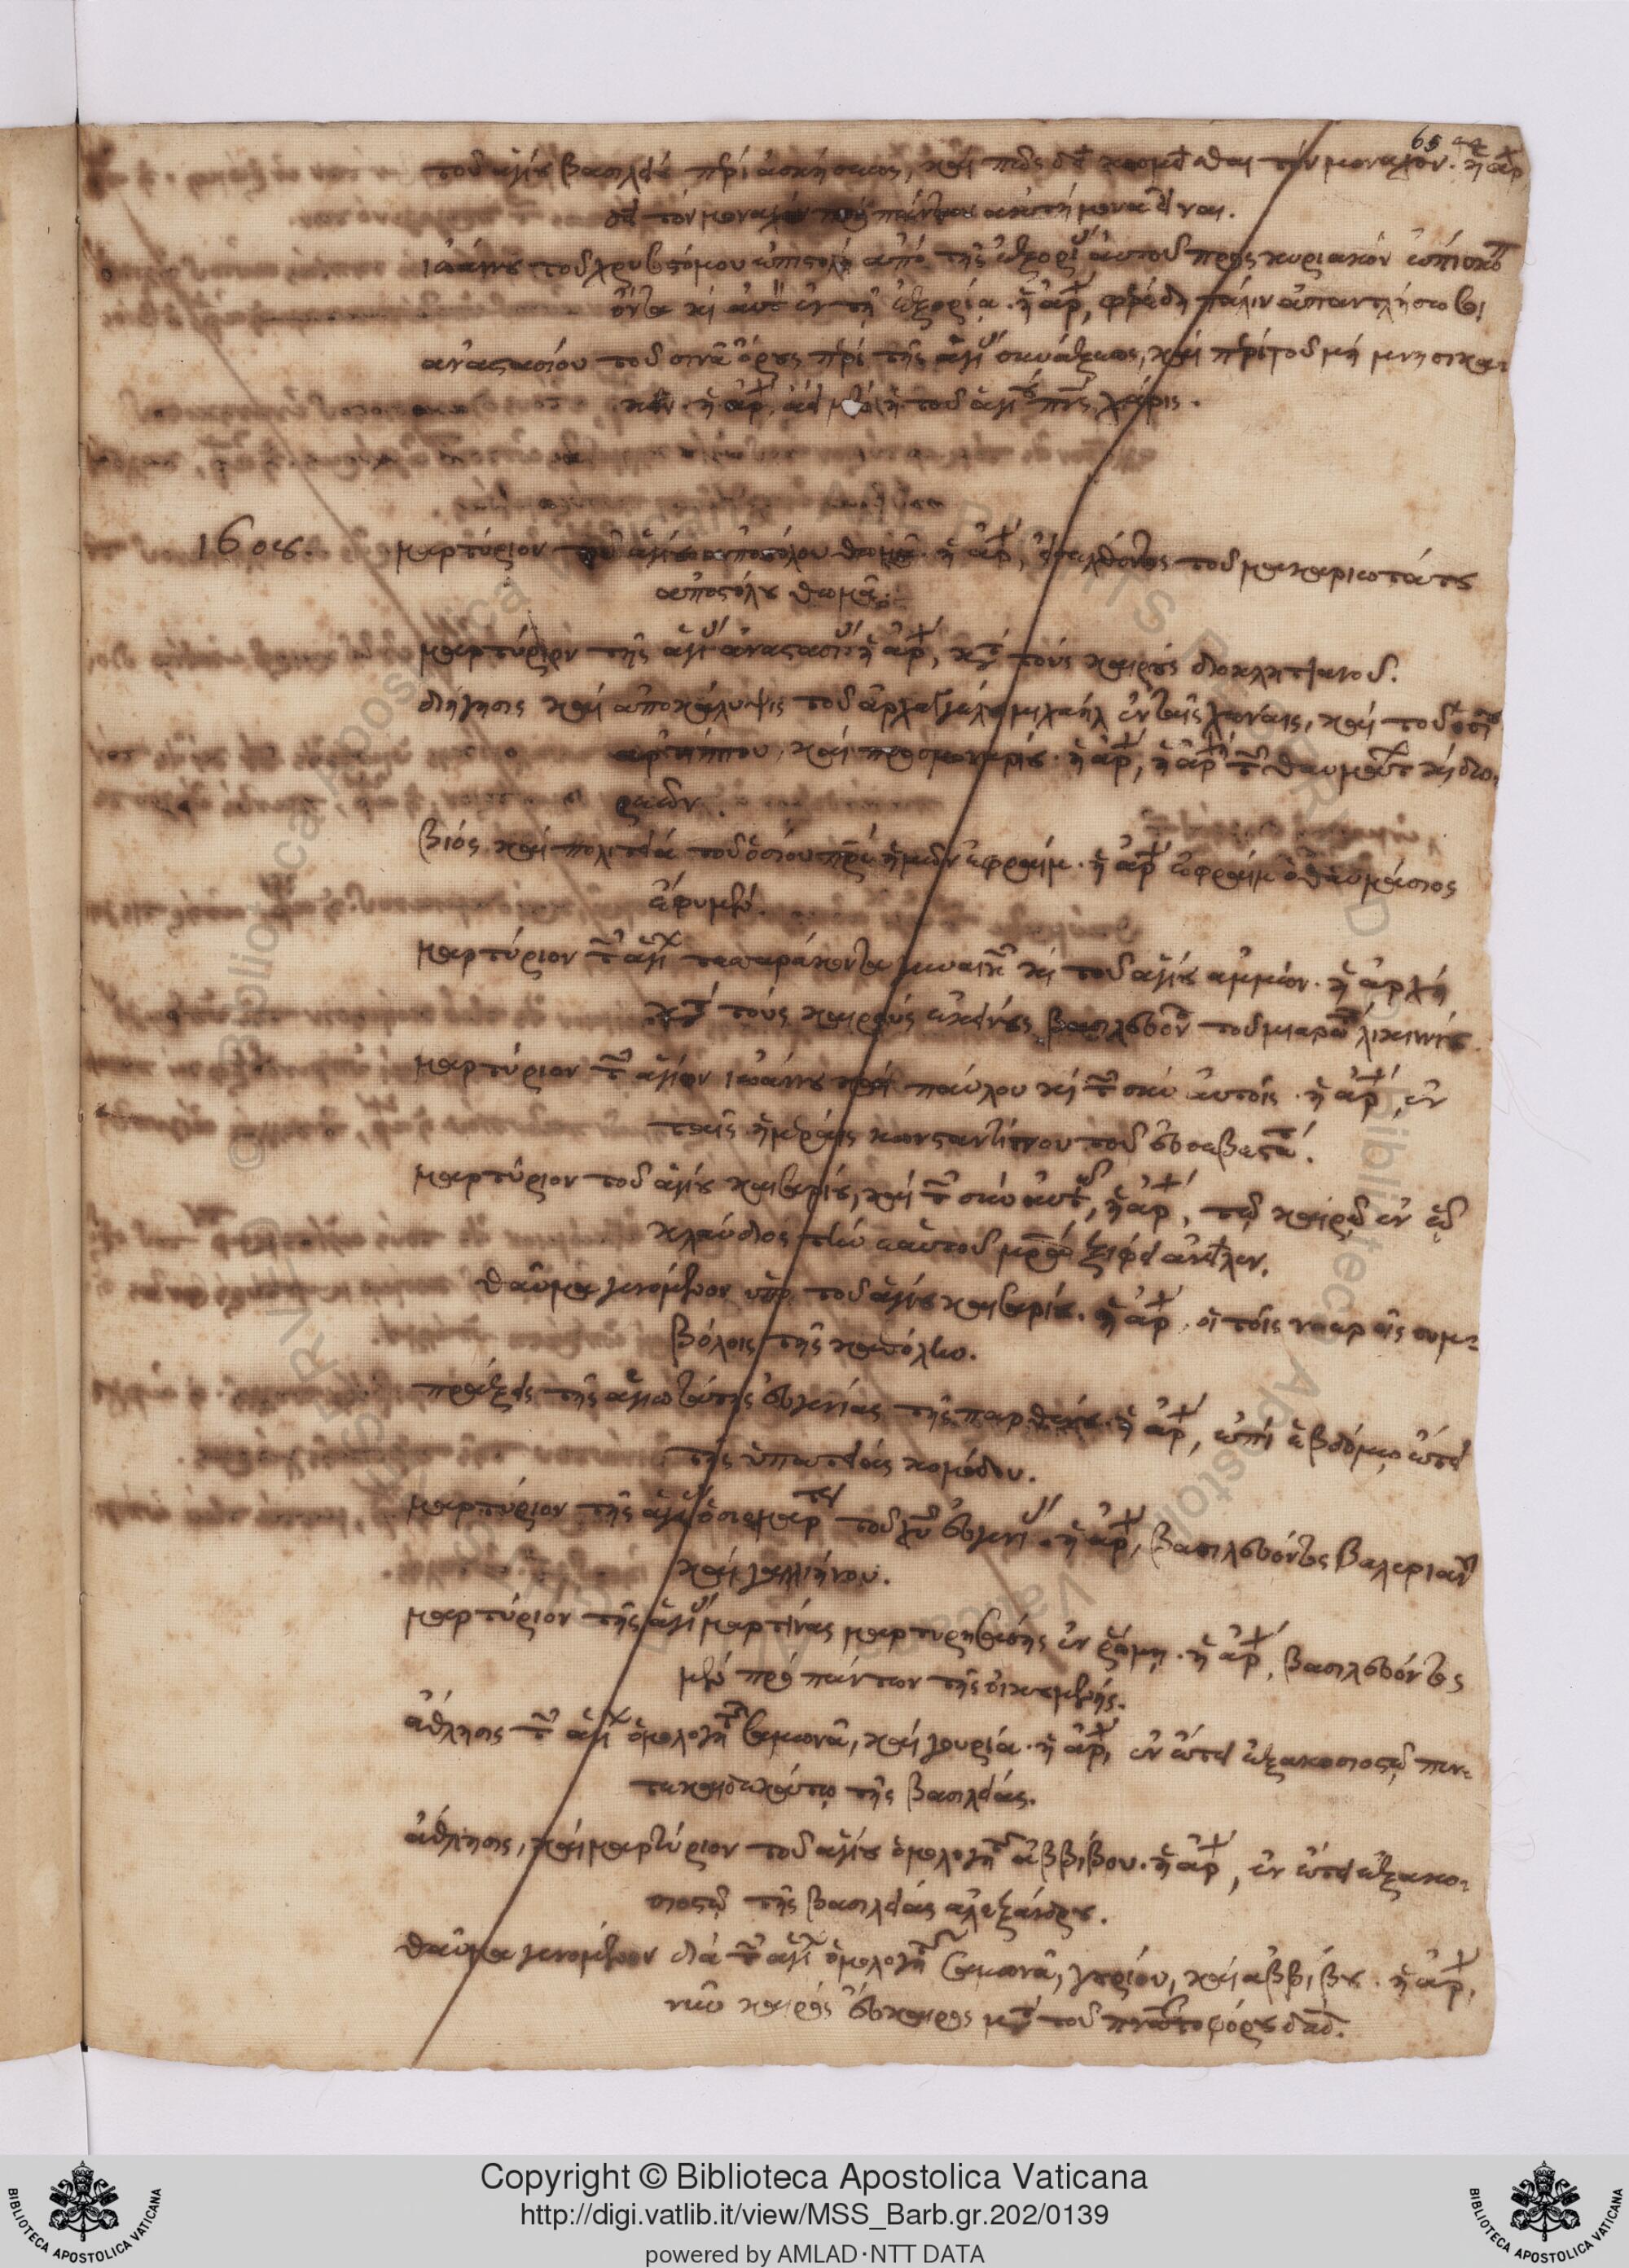 65
τοῦ ἁγίου βασιλεί περὶ ἀσκήσεως, καὶ πῶς δεῖ κοσμεῖσθαι τὸν μοναχόν. ἡ ἀρχ
δεῖ τὸν μοναχὸν πρὸ πάντων
ἰωάννου τοῦ χρυσοστόμου ἐπιστολὴ ἀπὸ τῆς ἐξορί αὐτοῦ πρὸς κυριακὸν ἐπίσκοπ
ὄντα κὶ αὐτ ἐν τῇ ἐξορίᾳ. ἡ ἀρχ, φέρε δὴ πάλιν ἀπαντλήσω σοι
ἀναστασίου τοῦ σινᾶ ὄρους περὶ τῆς ἁγί συνάξεως, καὶ περὶ τοῦ μὴ μνησικα-
κεῖν. ἡ ἀρχ, ἀεὶ μὲν ἡ τοῦ ἁγί πνς χάρις.
16 ος.
μαρτύριον τοῦ ἁγίου ἀποστόλου θωμᾶ. ἡ ἀρχ, τοῦ μακαριωτάτου
ἀποστόλου θωμᾶ.
μαρτύριον τῆς ἁγί ἀναστασί ἡ ἀρχ, κτ τοὺς καιροὺς διοκλητιανοῦ.
διήγησις καὶ ἀποκάλυψις τοῦ ἀρχαγγέλου μιχαὴλ ἐν ταῖς χώναις, καὶ τοῦ ὁσί
ἀρχίππου καὶ προσμοναρίου. ἡ ἀρχ, ἡ ἀρχ τ θαυμάτ κὶ δω-
ρεῶν.
βίος καὶ πολιτεία τοῦ ὁσίου πρς ἡμῶν ἐφραίμ. ἡ ἀρχ ἐφραὶμ ὁ θαυμάσιος
ἔφυ μὲν.
μαρτύριον τ ἁγί τεσσαράκοντα γυναικ κὶ τοῦ ἁγίου ἀμμών. ἡ ἀρχὴ
κτ τοὺς καιροὺς ἐκείνους βασιλεύον τοῦ μιαρω λικινίου
μαρτύριον τ ἁγίων ἰωάννου καὶ παύλου κὶ τ σὺν αὐτοῖς. ἡ ἀρχ, ἐν
ταῖς ἡμέραις κωνσταντίνου τοῦ εὐσεβεστ.
μαρτύριον τοῦ ἁγίου καισαρίου, καὶ τ σὺν αὐτῶ, ἡ ἀρχ, τῷ καιρῷ ἐν ᾧ
κλαύδιος τὴν ἑαυτοῦ μρα ξίφει ἀνεῖλεν.
θαῦμα γενόμενον ὑπὸ τοῦ ἁγίου καισαρίου. ἡ ἀρχ, οἱ τοῖς νεαροῖς συμ-
βόλοις τῆς
πράξεις τῆς ἁγιωτάτης εὐγενίας τῆς παρθένου. ἡ ἀρχ, ἐπὶ ἑβδόμῳ ἔτει
τῆς ὑπατείας κομόδου.
μαρτύριον τῆς ἁγί ὁσιομάρτ τοῦ χυ εὐγενί. ἡ ἀρχ, βασιλεύοντος βαλεριαν
καὶ γαλλιήνου.
μαρτύριον τῆς ἁγί μαρτίνας μαρτυρησάσης ἐν ῥώμῃ. ἡ ἀρχ, βασιλεύοντος
μὲν πρὸ πάντων τῆς οἰκουμένης.
ἄθλησις τ ἁγί ὁμολογητ σαμωνᾶ, καὶ γουρία. ἡ ἀρχ, ἐν ἔτει ἑξακοσιοστῷ πεν-
τεκαιδεκάτῳ τῆς βασιλείας.
ἄθλησις, καὶ μαρτύριον τοῦ ἁγίου ὁμολογητ ἀββίβου. ἡ ἀρχ, ἐν ἔτει ἑξακο-
σιοστῷ τῆς βασιλείας ἀλεξάνδρου.
θαῦμα γενόμενον διὰ τ ἁγί ὁμολογητ σαμωνᾶ, γουρίου, καὶ ἀββίβου. ἡ ἀρχ,
νῦν καιρὸς εὔκαιρος μτ τοῦ πνευματοφόρου δαδ.
Copyright © Biblioteca Apostolica Vaticana
http://digi.vatlib.it/view/MSS_Barb.gr.202/0139
powered by AMLAD·NTT DATA
BIBLIOTECA APOSTOLICA VATICANA
BIBLIOTECA APOSTOLICA VATICANA